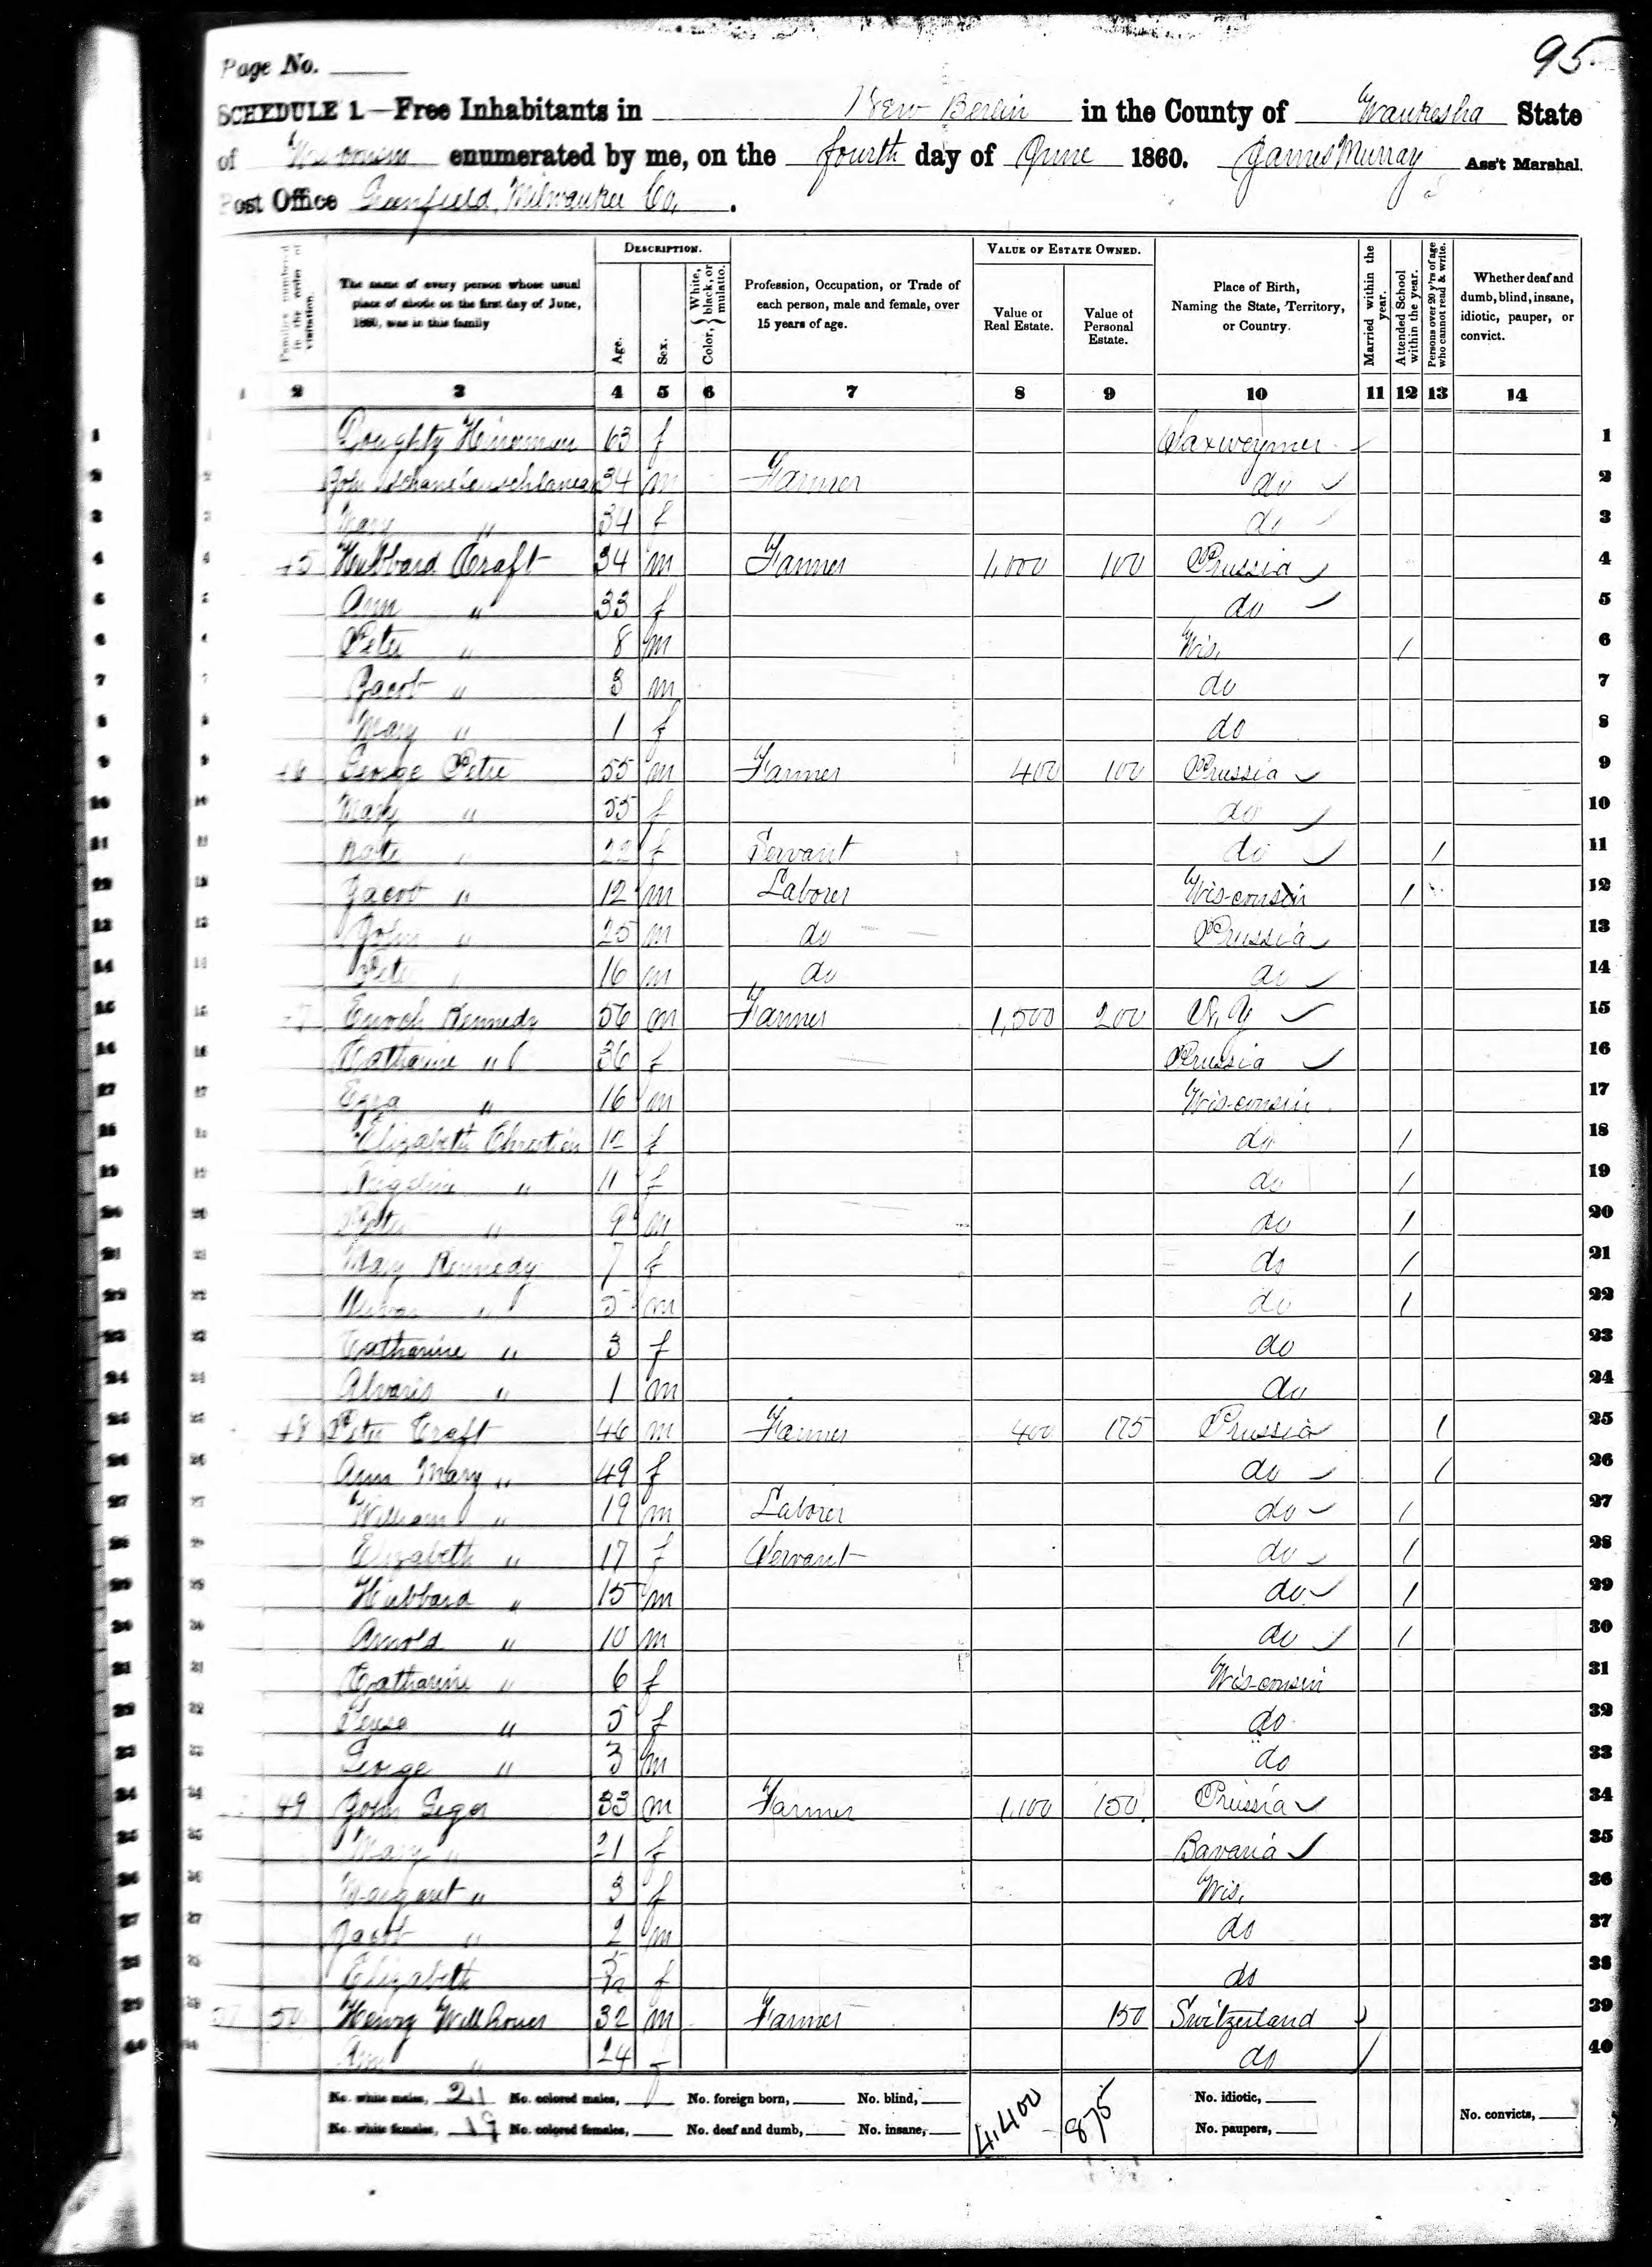 95
Page No.
SCHEDULE 1.—Free Inhabitants in New Berlin in the County of Waukesha State
of Wisconsin enumerated by me, on the fourth day of June 1860. James Murray Ass't Marshal.
Post Office Greenfield, Milwaukee Co,.
Families numbered in the order of visitation.
The name of every person whose usual place of abode on the first day of June, 1860, was in this family
DESCRIPTION.
Age.
Sex.
Color, { White, black, or mulatto.
Profession, Occupation, or Trade of each person, male and female, over 15 years of age.
VALUE OF ESTATE OWNED.
Value of Real Estate.
Value of Personal Estate.
Place of Birth, Naming the State, Territory, or Country.
Married within the year.
Attended School within the year.
Persons over 20 y'rs of age who cannot read & write.
Whether deaf and dumb, blind, insane, idiotic, pauper, or convict.
1 2 3 4 5 6 7 8 9 10 11 12 13 14
1 63 f 1
2 John 34 m Farmer do 2
3 Mary " 34 f do 3
4 45 Hubbard Craft 34 m Farmer 1,000 100 Prussia 4
5 Ann " 33 f do 5
6 Peter " 8 m Wis, / 6
7 Jacob " 3 m do 7
8 Mary " 1 f do 8
9 46 George Petre 55 m Farmer 400 100 Prussia 9
10 Mary " 55 f do 10
11 Kate " 22 f Servant do / 11
12 Jacob " 12 m Laborer Wisconsin / 12
13 John " 25 m do Prussia 13
14 Peter " 16 m do do 14
15 Kennedy 56 m Farmer 1,500 200 N,Y 15
16 Catharine " 36 f Prussia 16
17 Ezra " 16 m Wisconsin 17
18 Elizabeth Christien 12 f do / 18
19 " 11 f do / 19
20 Peter " 9 m do / 20
21 Mary Kennedy 7 f do / 21
22 " 5 m do / 22
23 Catharine " 3 f do 23
24 Alvaris " 1 m do 24
25 48 Peter Craft 46 m Farmer 400 175 Prussia / 25
26 Ann Mary " 49 f do / 26
27 William " 19 m Laborer do / 27
28 Elizabeth " 17 f Servant do / 28
29 Hubbard " 15 m do / 29
30 Arnold " 10 m do / 30
31 Catharine " 6 f Wisconsin 31
32 " 5 f do 32
33 George " 3 m do 33
34 49 John Seger 33 m Farmer 1,100 150 Prussia 34
35 Mary " 21 f Bavaria 35
36 Margaret " 3 f Wis, 36
37 Jacob " 2 m do 37
38 Elizabeth 5/12 f do 38
39 50 Henry 32 m Farmer 150 Switzerland / 39
40 Ann " 24 f do / 40
No. white males, 21 No. colored males, No. foreign born, No. blind, 4,400 875 No. idiotic,
No. white females, 19 No. colored females, No. deaf and dumb, No. insane, No. paupers, No. convicts,